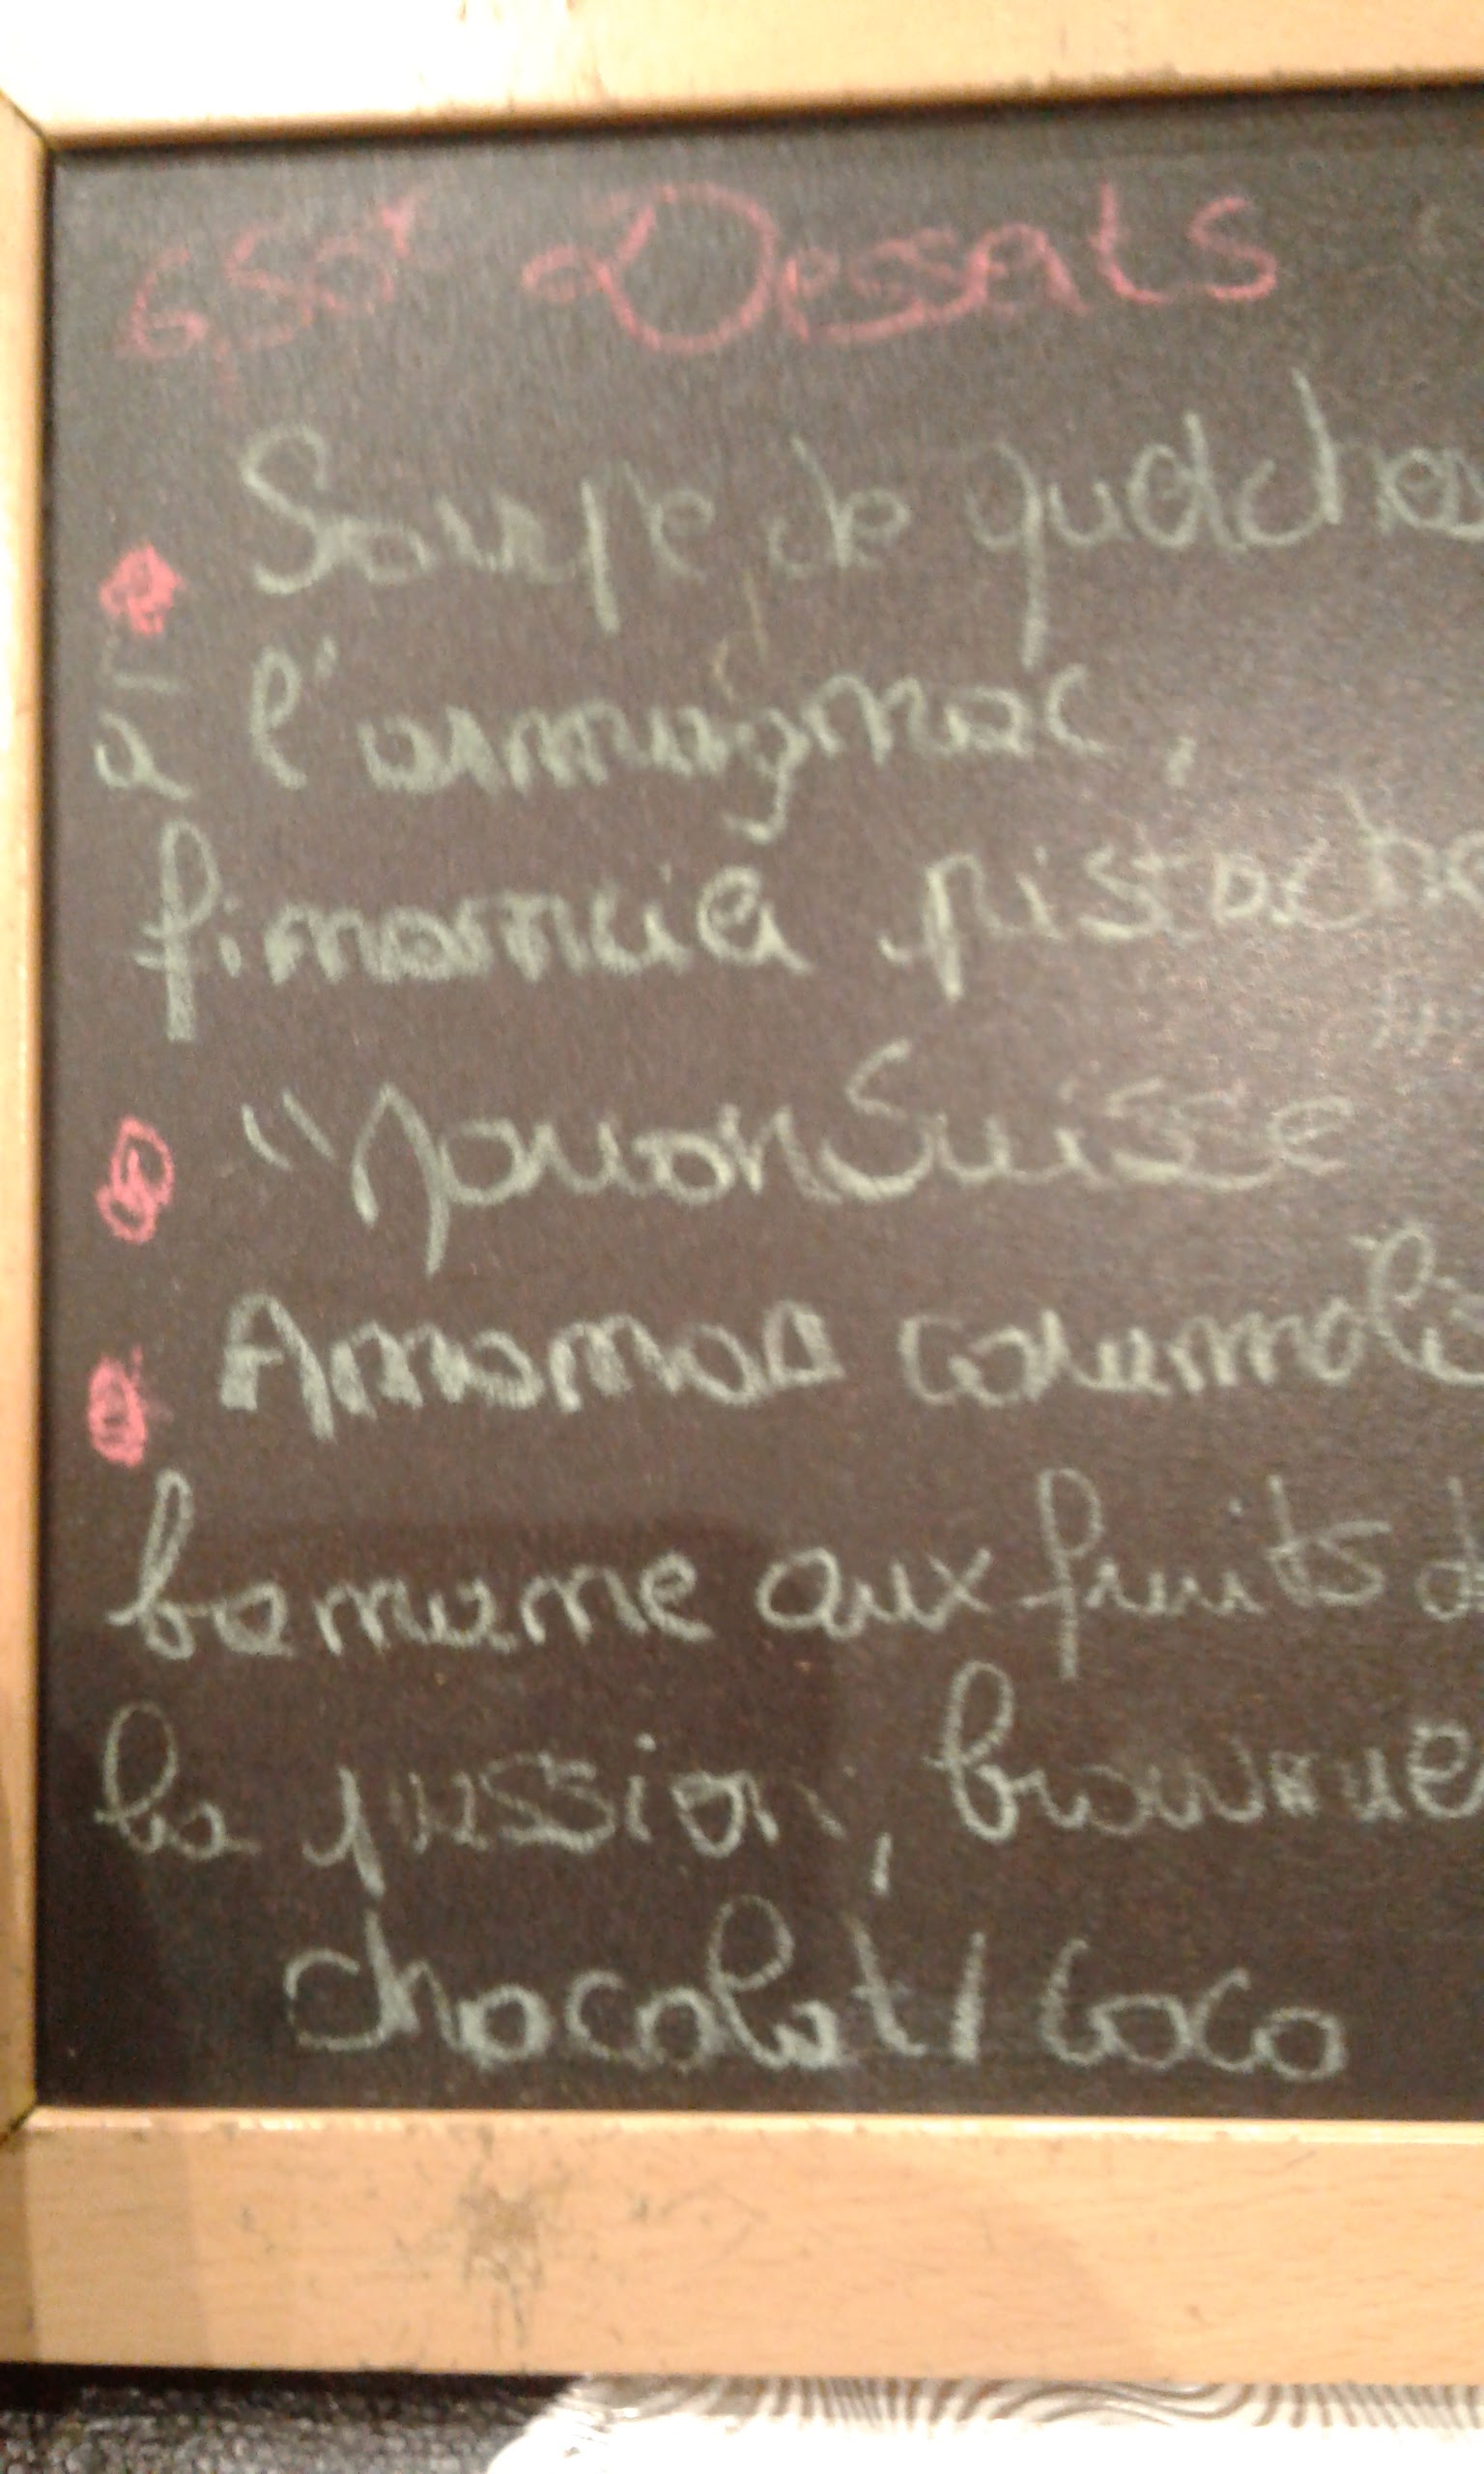 6,50€ Desserts
Soupe de quetches
à l'armagnac,
financier pistache
"Mouonsuisse"
Ananas caramélisé
banane aux fruits de
la passion, brownie
chocolat / coco